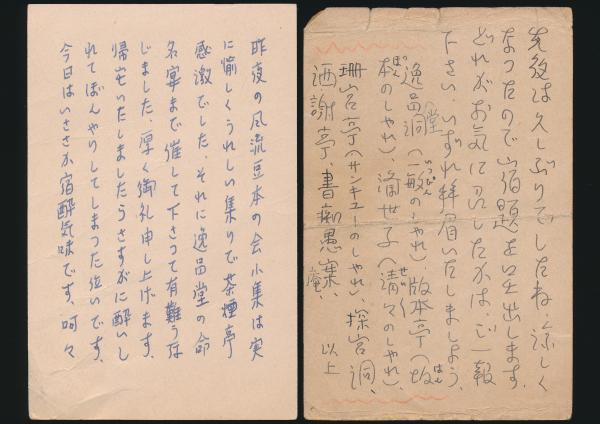 先夜は久しぶりでしたね、涼しく
なつたので宿題を呈出します。
どれがお気に召したかは、ご一報
下さい、いずれ拝眉いたしましよう。
逸品洞(堂)(一敏のしやれ)、版本亭(坂
本のしやれ)、清世子(清々のしやれ)、
珊宮亭(サンキユーのしやれ)、探宮洞、
洒謝亭、書痴愚集、庵
以上
昨夜の風流豆本の会小集は実
に愉しくうれしい集りで茶煙亭
感激でした、それに逸品堂の命
名宴まで催して下さつて有難う存
じました、厚く御礼申し上げます、
帰宅いたしましたらさすがに酔いし
れてぼんやりしてしまつた位いです、
今日はいささか宿酔気味です、呵々